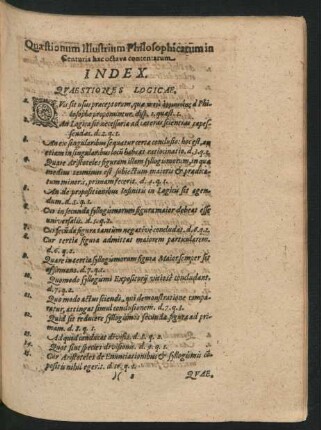 Quæstionum Illustrium Philosophicarum in
Centuria hac octava contentarum.
INDEX.
QVÆSTIONES LOGICAE.
1. QVis sit usus præceptorum, quæ
losopho proponuntur. disp. 1. quæst. 1.
2. An Logica sit necessaria ad cæteras scientias capes-
sendas. d. 2. q. 1.
3. An ex singularibus sequatur certa conclusio: hoc est, an
etiam in singularibus
4. Quare Aristoteles figuram illam syllogismorum, in qua
medius terminus est subjectum majoris & prædica-
tum minoris, primam fecerit. d. 4. q. 1.
5. An de propositionibus Infinitis in Logica sit agen-
dum. d. 5. q. 1.
6. Cur in secunda syllogismorum figura maior debeat esse
universalis. d. 6. q. 1.
7. Cur secunda figura tantum negative concludat. d. 6. q. 2.
8. Cur tertia figura admittat maiorem particularem.
d. 7. q. 1.
9. Quare in tertia syllogismorum figura Maior semper sit
affirmans. d. 7. q. 2.
10. Quomodo syllogismi Expositorii vitiose concludant.
d. 7. q. 3.
11. Quo modo actus sciendi, qui demonstratione compa-
ratur, attingat simul conclusionem. d. 7. q. 3.
12. Quid sit reducere syllogismos secundæ figuræ ad pri-
mam. d. 8. q. 1.
13. Ad quid conducat divisio. d. 8. q. 2.
14. Quæ sint species divisionis. d. 9. q. 1.
15. Cur Aristoteles de Enunciationibus & syllogismis co-
positis nihil egerit. d. 10. q. 1.
)( 2 QVAE-